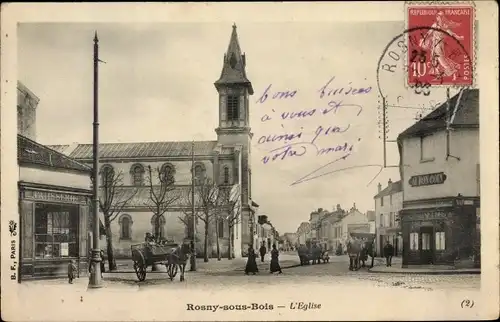 REPUBLIQUE FRANÇAISE
10
POSTES
ROSNY
bons baisers
à vous et
ainsi qu'à
votre mari
PATISSERIE
AU BON COIN
B. F., PARIS
Rosny-sous-Bois — L'Eglise
(2)